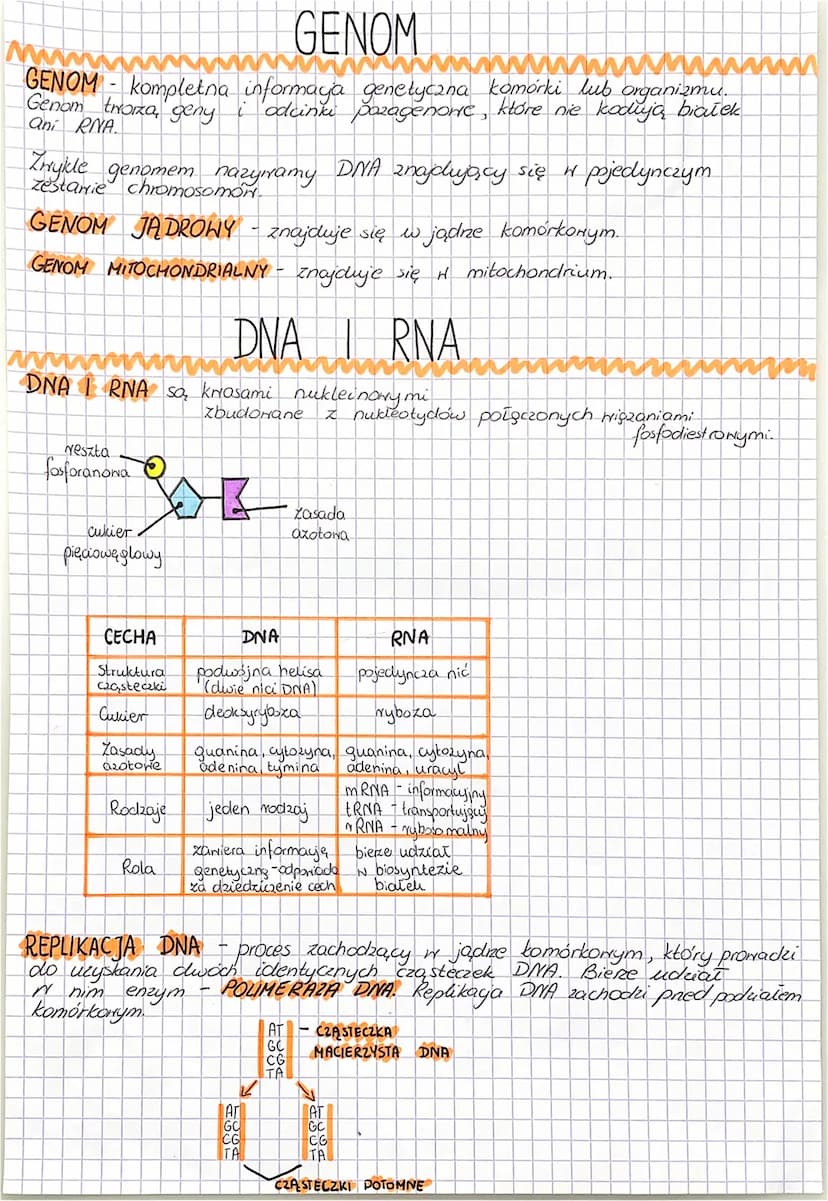 GENOM
GENOM - kompletna informacja genetyczna komórki lub organizmu.
Genom tworzą geny i odcinki pozagenowe, które nie kodują białek
ani RNA.
Zwykle genomem nazywamy DNA znajdujący się w pojedynczym
zestawie chromosomów.
GENOM JĄDROWY - znajduje się w jądrze komórkowym.
GENOM MITOCHONDRIALNY - znajduje się w mitochondrium.
DNA I RNA
DNA I RNA są kwasami nukleinowymi
zbudowane z nukleotydów połączonych wiązaniami
fosfodiestrowymi.
reszta
fosforanowa
zasada
azotowa
cukier
pięciowęglowy
CECHA DNA RNA
Struktura cząsteczki podwójna helisa (dwie nici DNA) pojedyncza nić
Cukier deoksyryboza ryboza
Zasady azotowe guanina, cytozyna, adenina, tymina guanina, cytozyna, adenina, uracyl
Rodzaje jeden rodzaj mRNA - informacyjny tRNA - transportujący rRNA - rybosomalny
Rola zawiera informację genetyczną - odpowiada za dziedziczenie cech bierze udział w biosyntezie białek
REPLIKACJA DNA - proces zachodzący w jądrze komórkowym, który prowadzi
do uzyskania dwóch identycznych cząsteczek DNA. Bierze udział
w nim enzym - POLIMERAZA DNA. Replikacja DNA zachodzi przed podziałem
komórkowym.
AT - CZĄSTECZKA
GC MACIERZYSTA DNA
CG
TA
AT AT
GC GC
CG CG
TA TA
CZĄSTECZKI POTOMNE